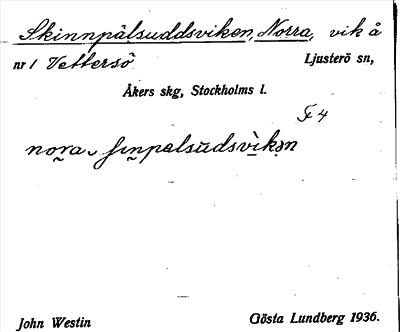 Skinnpälsuddsviken, Norra, vik å
nr 1 Vettersö Ljusterö sn,
Åkers skg, Stockholms l.
F 4
nora ʃinpalsudsvikən
John Westin Gösta Lundberg 1936.